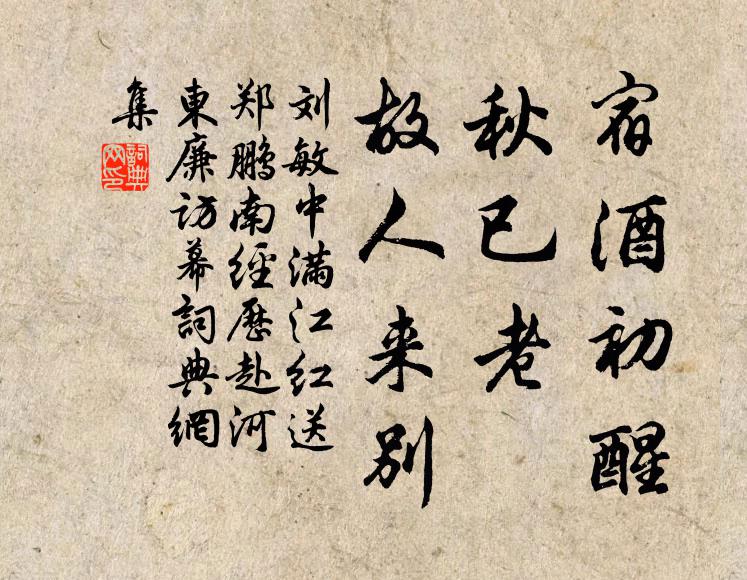 宿酒初醒
秋已老
故人来别
刘敏中满江红送
郑鹏南經歷赴河
東廉访幕詞典網
集
詞典
网印